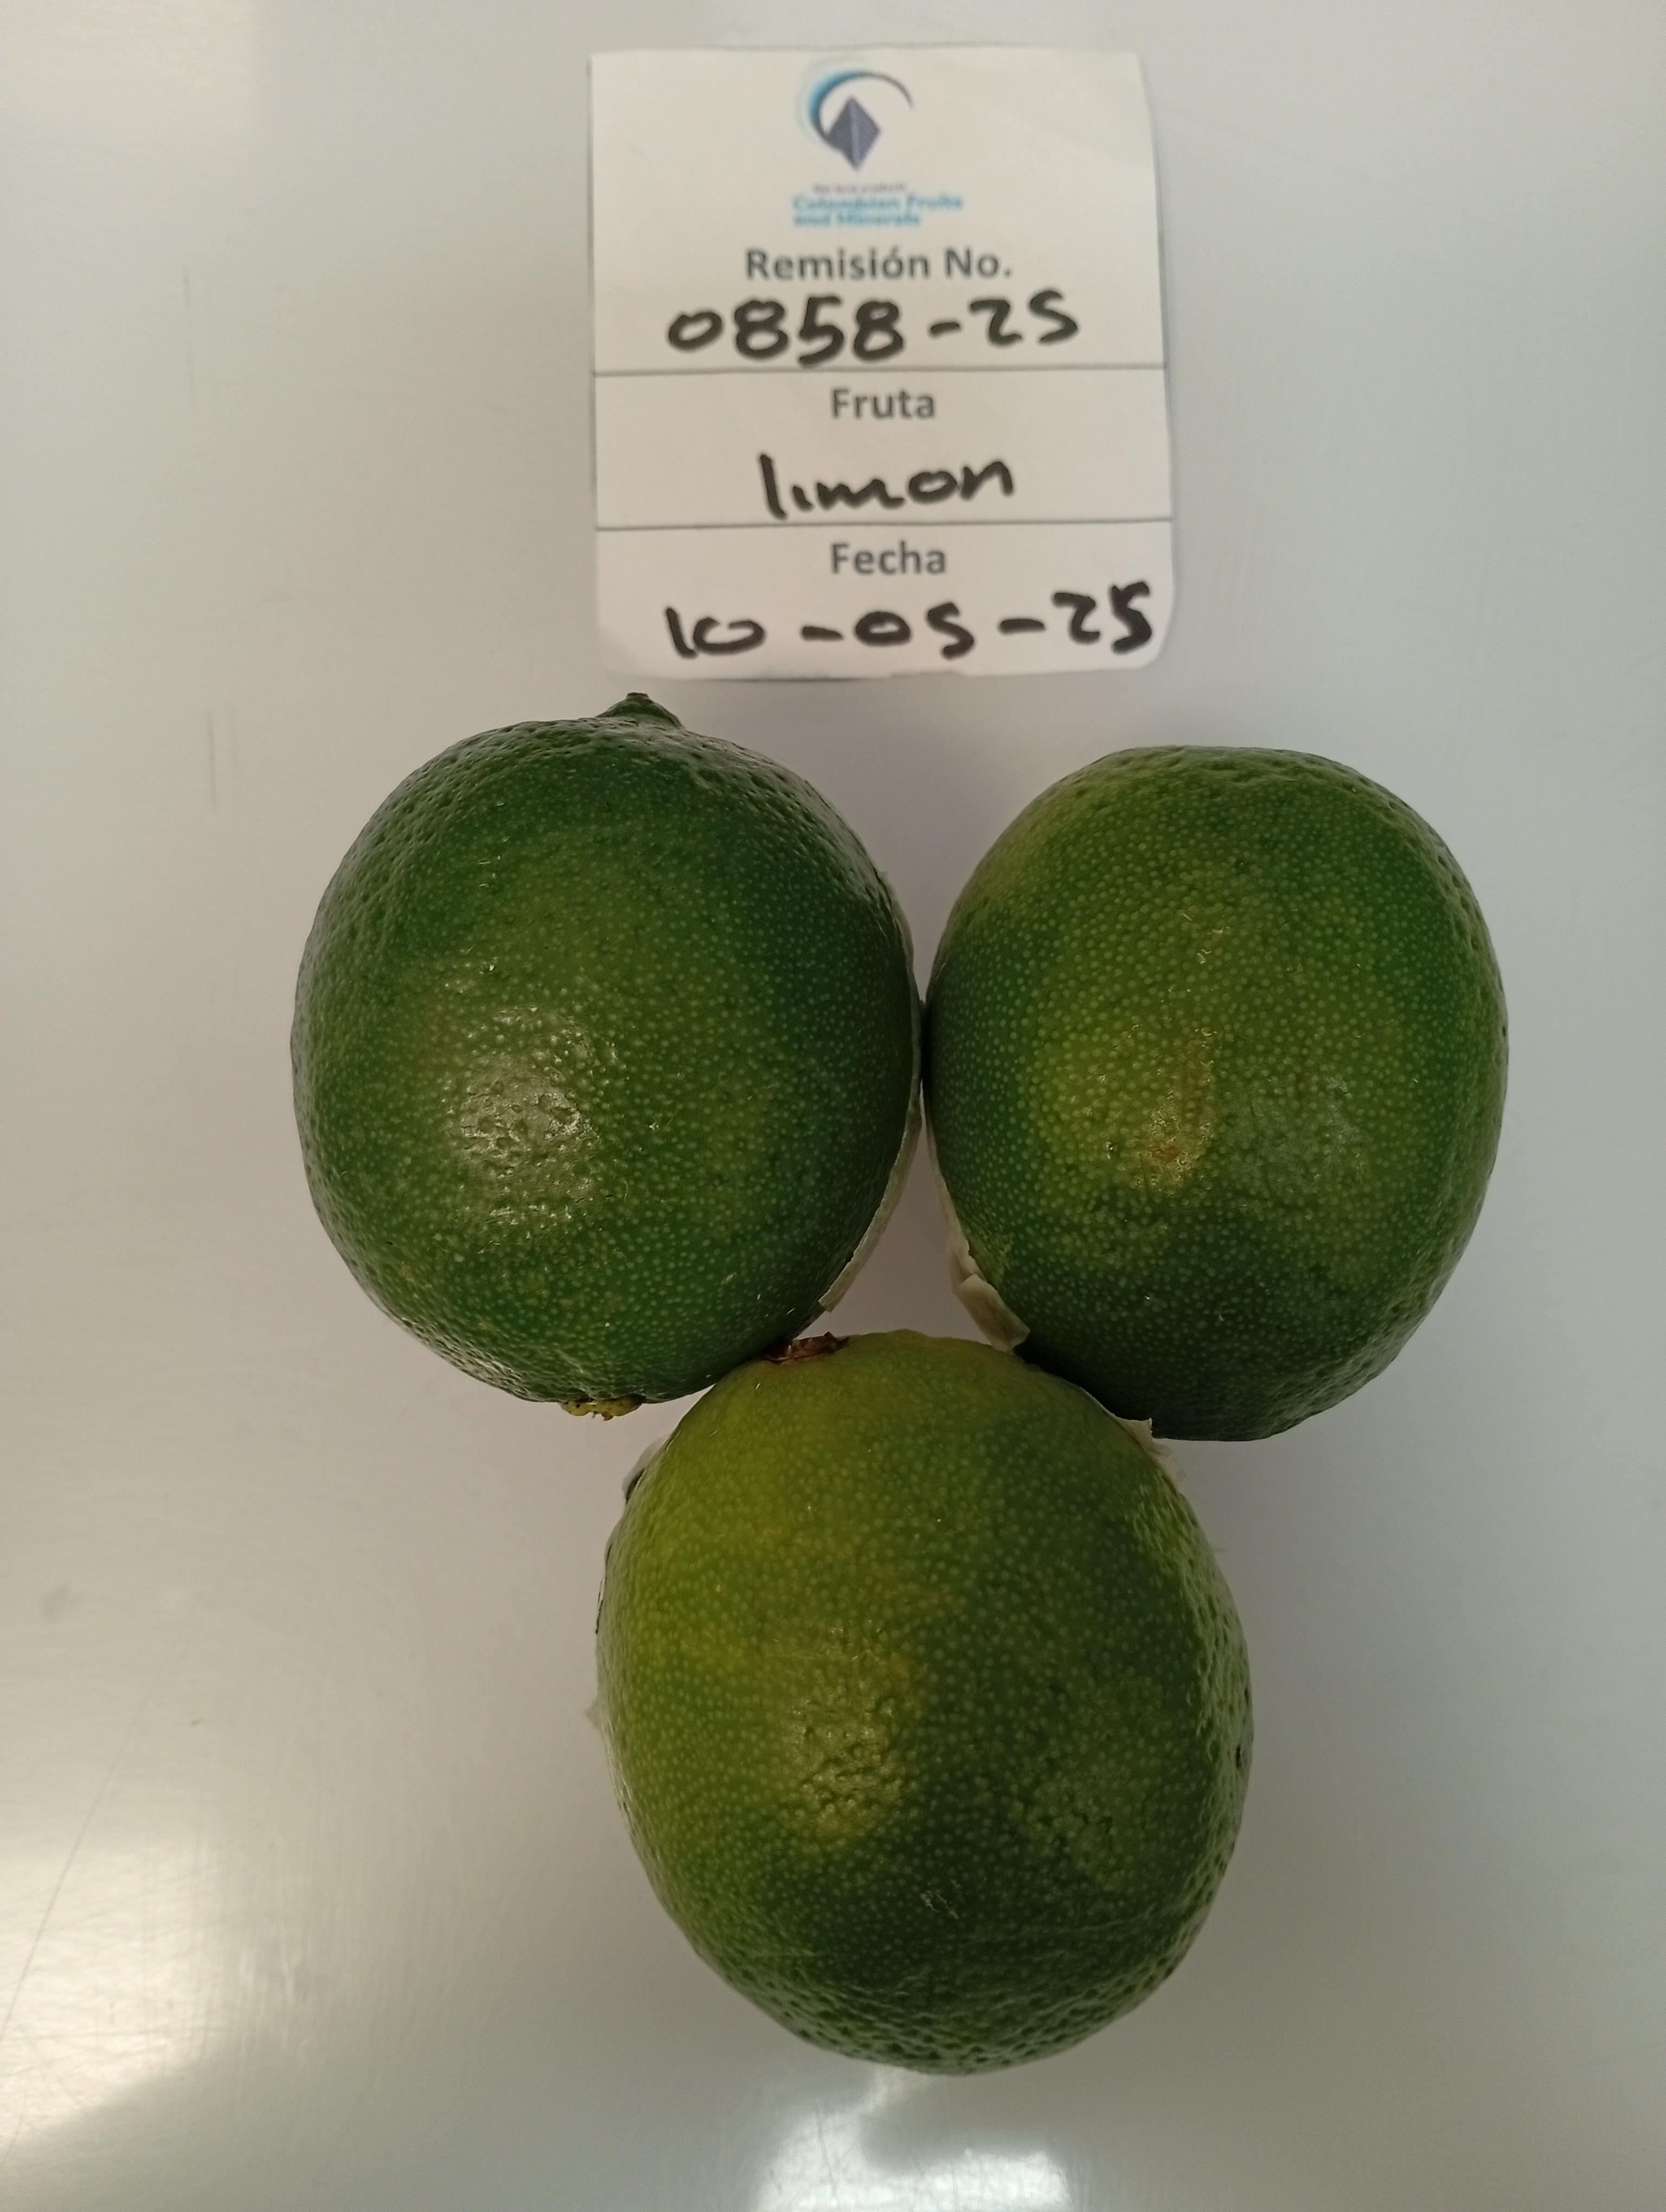 Colombian Fruits
and Minerals
Remisión No.
0858-25
Fruta
limon
Fecha
10-05-25